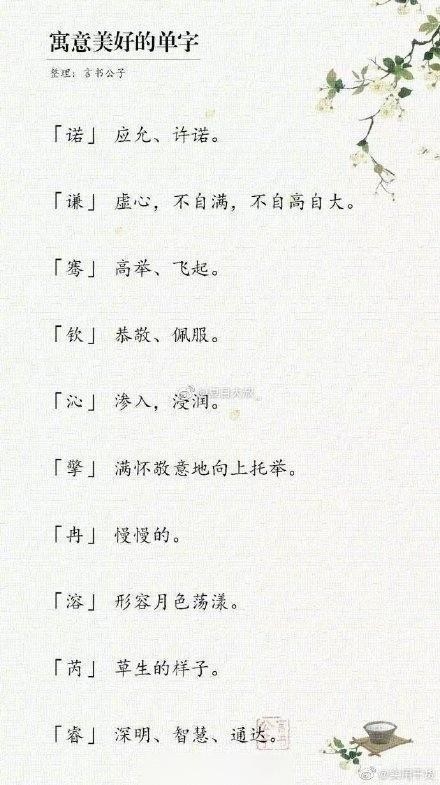 寓意美好的单字
整理：言书公子
「诺」 应允、许诺。
「谦」 虚心，不自满，不自高自大。
「骞」 高举、飞起。
「钦」 恭敬、佩服。
「沁」 渗入，浸润。
「擎」 满怀敬意地向上托举。
「冉」 慢慢的。
「溶」 形容月色荡漾。
「芮」 草生的样子。
「睿」 深明、智慧、通达。